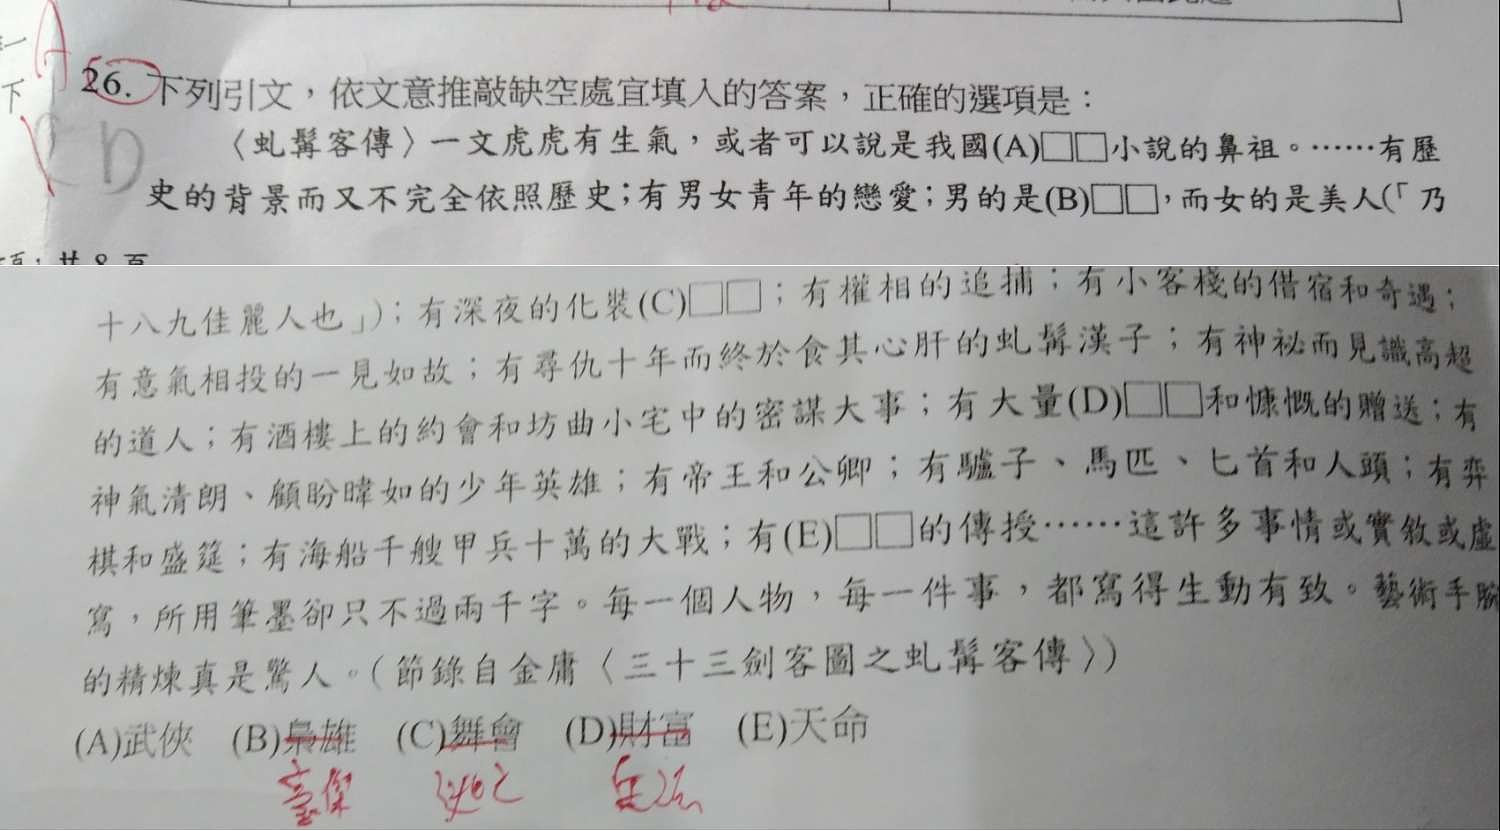 一
下
A
D
26. 下列引文，依文意推敲缺空處宜填入的答案，正確的選項是：
〈虬髯客傳〉一文虎虎有生氣，或者可以說是我國(A)□□小說的鼻祖。……有歷
史的背景而又不完全依照歷史；有男女青年的戀愛；男的是(B)□□，而女的是美人(「乃
頁，共 8 頁
十八九佳麗人也」)；有深夜的化裝(C)□□；有權相的追捕；有小客棧的借宿和奇遇；
有意氣相投的一見如故；有尋仇十年而終於食其心肝的虬髯漢子；有神祕而見識高超
的道人；有酒樓上的約會和坊曲小宅中的密謀大事；有大量(D)□□和慷慨的贈送；有
神氣清朗、顧盼暐如的少年英雄；有帝王和公卿；有驢子、馬匹、匕首和人頭；有弈
棋和盛筵；有海船千艘甲兵十萬的大戰；有(E)□□的傳授……這許多事情或實敘或虛
寫，所用筆墨卻只不過兩千字。每一個人物，每一件事，都寫得生動有致。藝術手腕
的精煉真是驚人。(節錄自金庸〈三十三劍客圖之虬髯客傳〉)
(A)武俠 (B)梟雄 (C)舞會 (D)財富 (E)天命
豪傑 逃亡